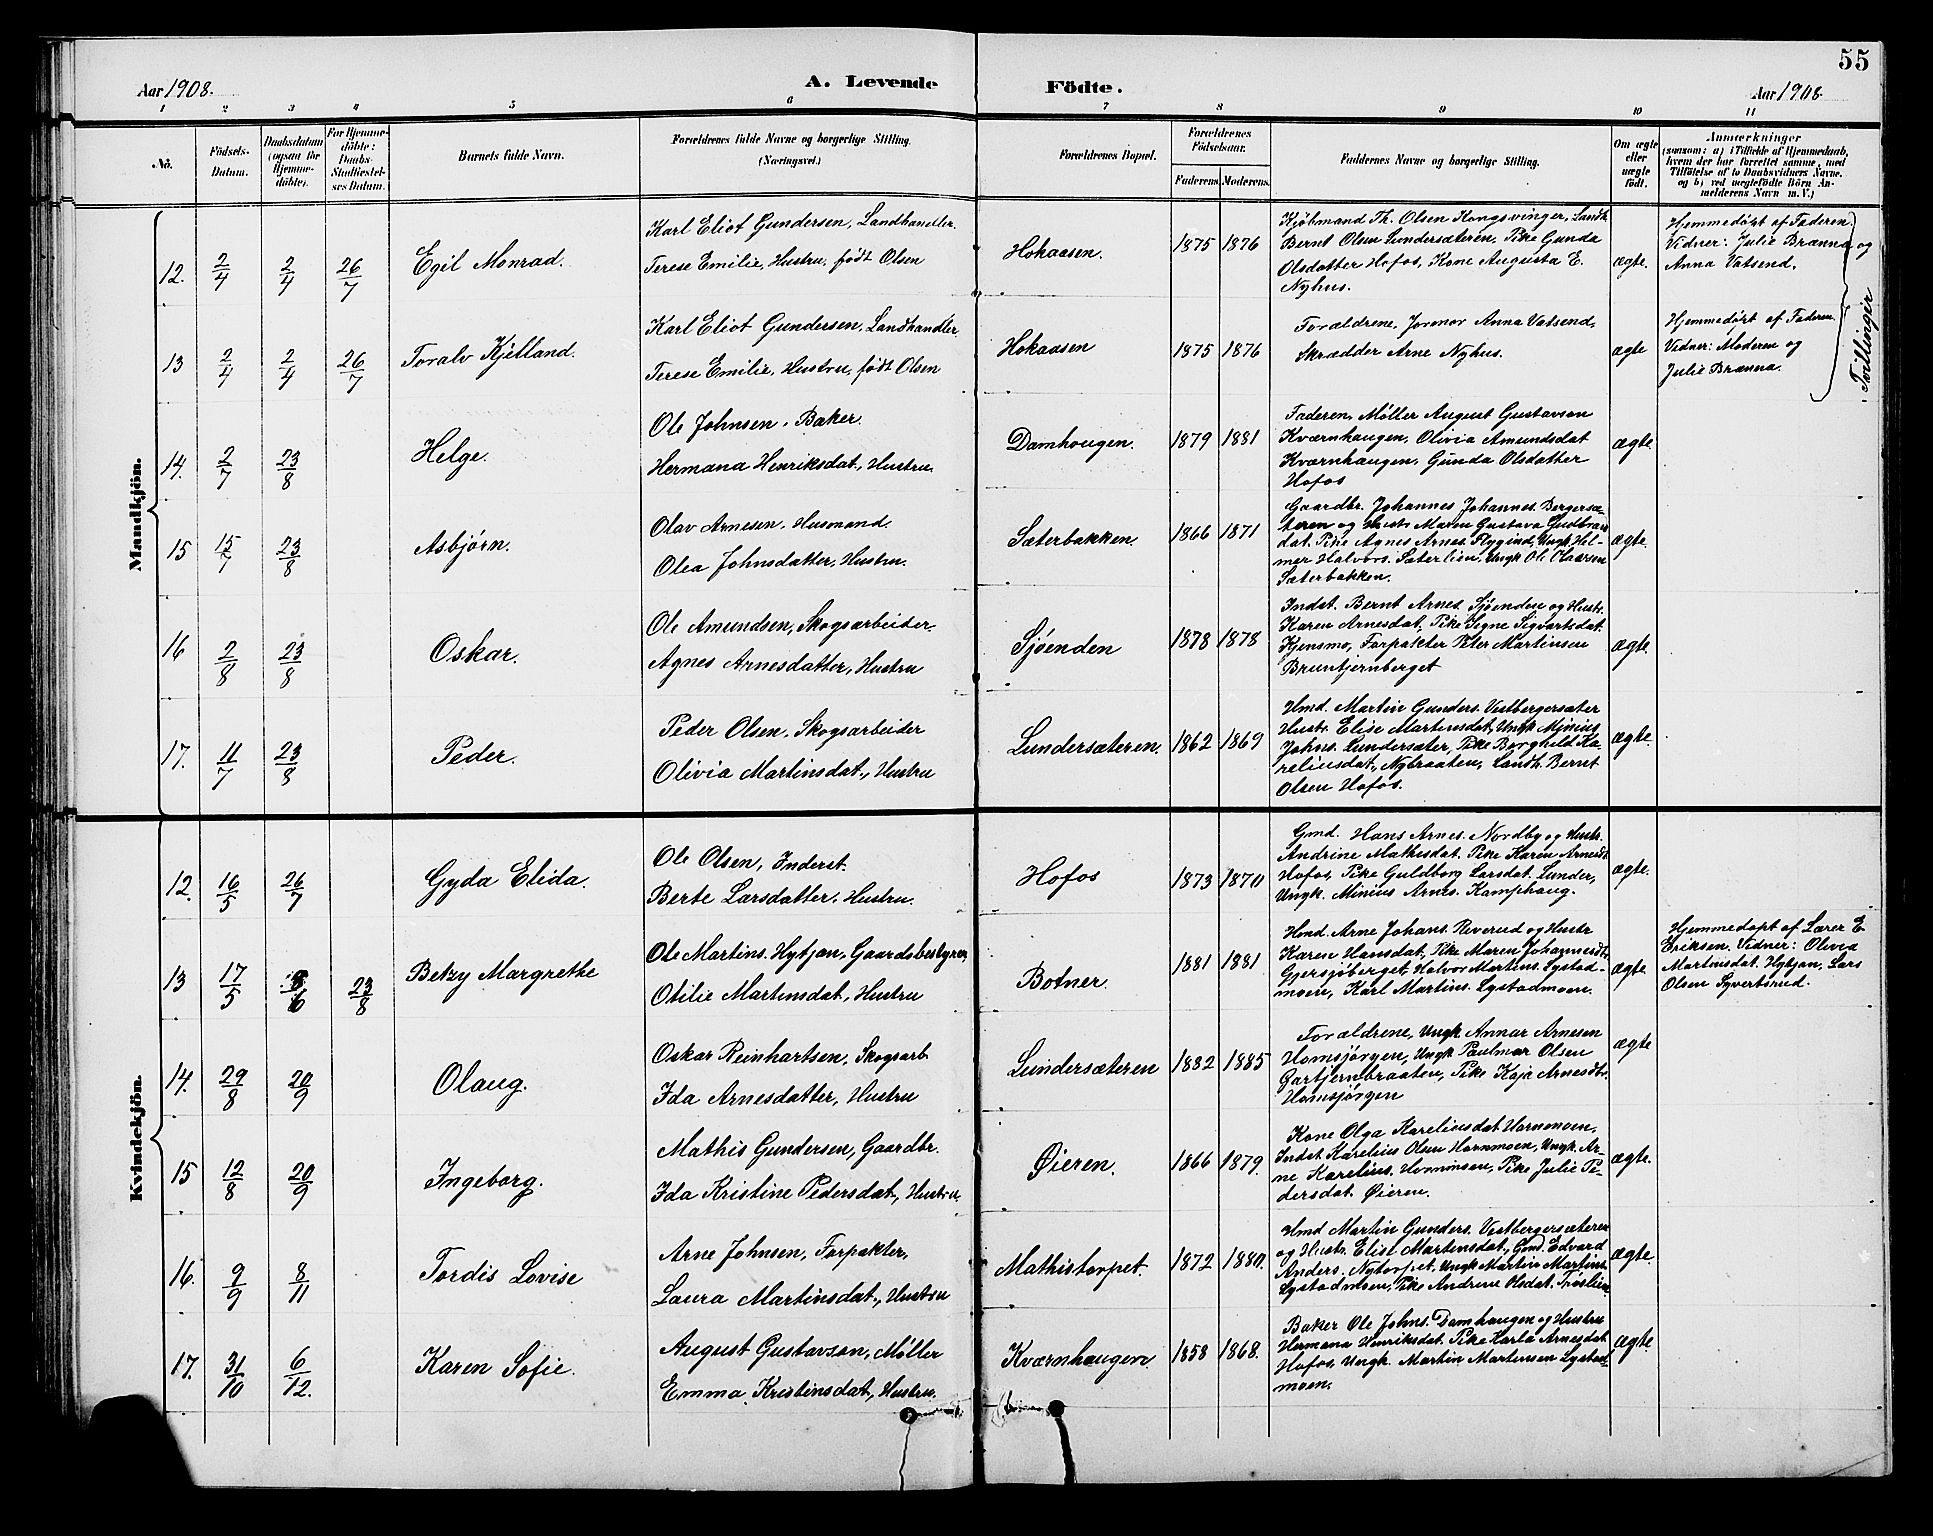 55
Aar 1908. A. Levende Fødte. Aar 1908.
1 2 3 4 5 6 7 8 9 10 11
No.
Födsels-
Datum.
Daabsdatum
(ogsaa for
Hjemme-
döbte).
For Hjemme-
döbte:
Daabs-
Stadfæstel-
ses Datum.
Barnets fulde Navn.
Forældrenes fulde Navne og borgerlige Stilling.
(Næringsvei.)
Forældrenes Bopæl.
Forældrenes
Födselsaar.
Faderens. Moderens.
Faddernes Navne og borgerlige Stilling.
Om ægte
eller
uægte
født.
Anmærkninger
(saasom: a) i Tilfælde af Hjemmedaab,
hvem der har forrettet samme, med
Tilföielse af to Daabsvidners Navne.
og b) ved uægtefödte Börn An-
melderens Navn m. V.)
Mandkjön.
12. 2/4 2/4 26/7 Egil Monrad.
Karl Eliot Gundersen, Landhandler.
Terese Emilie, Hustru, født Olsen
Hokaasen. 1875 1876
Kjøbmand Th. Olsen Kongsvinger, Landh.
Bernt Olsen Lundersæteren, Pike Gunda
Olsdatter Hofos, Kone Augusta E.
Nyhus.
ægte.
Hjemmedøpt af Faderen.
Vidner: Julie Brænna og
Anna Vatsend.
13 2/4 2/4 26/7 Toralv Kjelland.
Karl Eliot Gundersen, Landhandler.
Terese Emilie, Hustru, født Olsen
Hokaasen 1875 1876
Forældrene, Jormor Anna Vatsend,
Skrædder Arne Nyhus.
ægte
Hjemmedøpt af Faderen.
Vidner: Moderen og
Julie Brænna.
Tvillinger
14. 2/7 23/8 Helge.
Ole Johnsen, Baker.
Hermana Henriksdat., Hustru.
Damhougen. 1879 1881
Faderen, Møller August Gustavson
Kværnhaugen, Olivia Amundsdat
Kværnhaugen, Gunda Olsdatter
Hofos
ægte.
15 15/7 23/8 Asbjørn.
Olav Arnesen, Husmand.
Olea Johnsdatter, Hustru.
Sæterbakken. 1866 1871
Gaardbr. Johannes Johannes. Bergersæ-
teren og Hustr. Maren Gustava Gudbran
dat. Pike Agnes Arnes. Flygind, Ungk. Hil-
mer Halvors. Sæterlien, Ungk Ole Olavsen
Sæterbakken.
ægte.
16 2/8 23/8 Oskar.
Ole Amundsen, Skogsarbeider.
Agnes Arnesdatter, Hustru
Sjøenden 1878 1878
Indst. Bernt Arnes. Sjøenden og Hustr.
Karen Arnesdat, Pike Signe Sigvartsdat.
Kjensmo, Forpakter Peter Martinsen
Bruntjernberget
ægte.
17. 11/7 23/8 Peder.
Peder Olsen, Skogsarbeider
Olivia Martinsdat., Hustru
Lundersæteren. 1862 1869
Hmd. Martin Gunders. Vestbergersæter
Hustr. Elise Martinsdat, Ungk Minius
Johns. Lundersæter, Pike Borghild Ka-
reliusdat., Nybraaten, Landh. Bernt
Olsen Hofos.
ægte.
Kvindekjön.
12. 16/5 26/7 Gyda Elida.
Ole Olsen, Inderst.
Berte Larsdatter, Hustru.
Hofos 1873 1870
Gmd. Hans Arnes. Nordby og Hustr.
Andrine Mathisdat. Pike Karen Arnesdt.
Hofos, Pike Guldborg Larsdat. Lunder,
Ungk. Minius Arnes. Kamphaug.
ægte.
13 17/5 /6 23/8 Betzy Margrethe
Ole Martins. Hytjan, Gaardsbestyrer,
Otilie Martinsdat, Hustru
Botner. 1881 1881
Hmd. Arne Johans. Reverud og Hustr
Karen Hansdat, Pike Maren Johannesdt.
Gjersjøberget, Halvor Martins. Lystad-
moen, Karl Martins. Lystadmoen.
ægte
Hjemmedøpt af Lærer E.
Eriksen. Vidner: Olivia
Martinsdat. Hytjan, Lars
Olsen Syvertsrud.
14. 29/8 20/9 Olaug.
Oskar Reinhartsen, Skogsarb
Ida Arnesdatter, Hustru
Lundersæteren 1882 1885
Forældrene, Ungk Annar Arnesen
Homsjørgen, Ungk Paulmar Olsen
Gartjernbraaten, Pike Kaja Arnesdt.
Homsjørgen
ægte
15 12/8 20/9 Ingeborg.
Mathis Gundersen, Gaardbr.
Ida Kristine Pedersdat, Hustru.
Øieren. 1866 1879.
Kone Olga Kareliusdat Hornmoen,
Indst Karelius Olsen Hornmoen, Ungk. Ar-
ne Karelius. Hornmoen, Pike Julie Pe-
dersdat. Øieren.
ægte.
16. 9/9 8/11 Tordis Lovise
Arne Johnsen, Forpakter,
Laura Martinsdat., Hustru
Mathistorpet. 1872 1880.
Hmd Martin Gunders. Vestbergersæteren
og Hustr. Elise Martinsdat, Gmd. Edvard
Anders. Nytorpet, Ungk Martin Martins
Lystadmoen, Pike Andrine Olsdat.
ægte.
17. 31/10 6/12. Karen Sofie.
August Gustavson, Møller
Emma Kristinsdat, Hustru.
Kværnhaugen 1858 1868.
Baker Ole Johns. Damhaugen og Hustru
Hermana Henriksdat. Pike Karla Arnesdat
Hofos, Ungk. Martin Martinsen Lystad-
moen.
ægte.